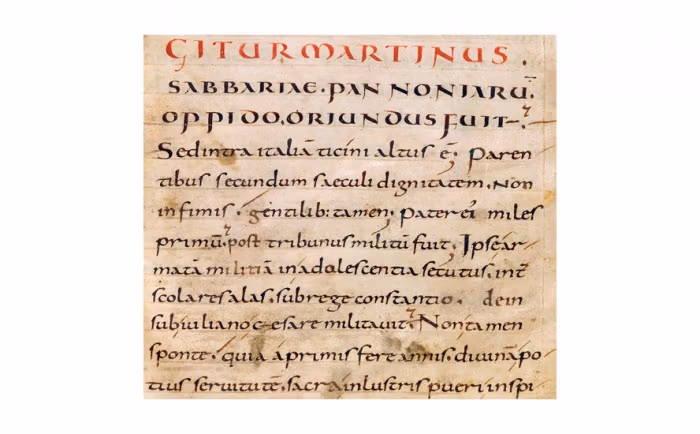 GITUR MARTINUS.
SABBARIAE. PANNONIARŪ.
OPPIDO. ORIUNDUS FUIT.
Sed intra italiā ticini altus ē; Paren
tibus secundum saeculi dignitatem. Non
infimis. gentilib: tamen; Pater ei miles
primū. post tribunus militū fuit; Ipse ar
matā militiā in adolescentia secutus. int̄
scolares alas. sub rege constantio. dein
sub iuliano cesare militauit. Non tamen
sponte. quia a primis fere annis. diuinā po
tius seruitutē. sacra inlustris pueri inspi